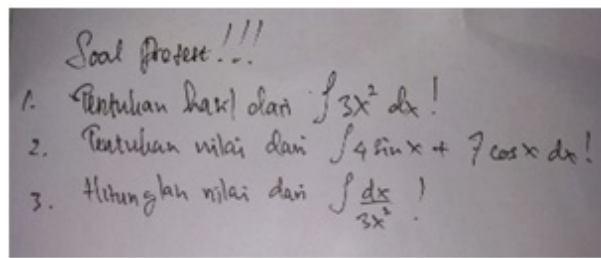 Soal Pretest!!!
1. Tentukan hasil dari ∫3x² dx!
2. Tentukan nilai dari ∫4 sin x + 7 cos x dx!
3. Hitunglah nilai dari ∫dx/3x² !